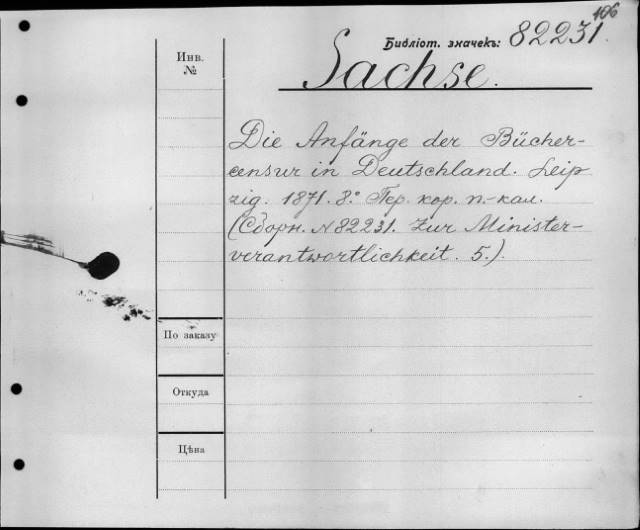 106
Библіот. значекъ: 82231.
Инв.
№
Sachse.
Die Anfänge der Bücher-
censur in Deutschland. Leip
zig. 1871. 8.° Пер. кор. п.-кал.
(Сборн. № 82231. Zur Minister-
verantwortlichkeit. 5.).
По заказу
Откуда
Цѣна